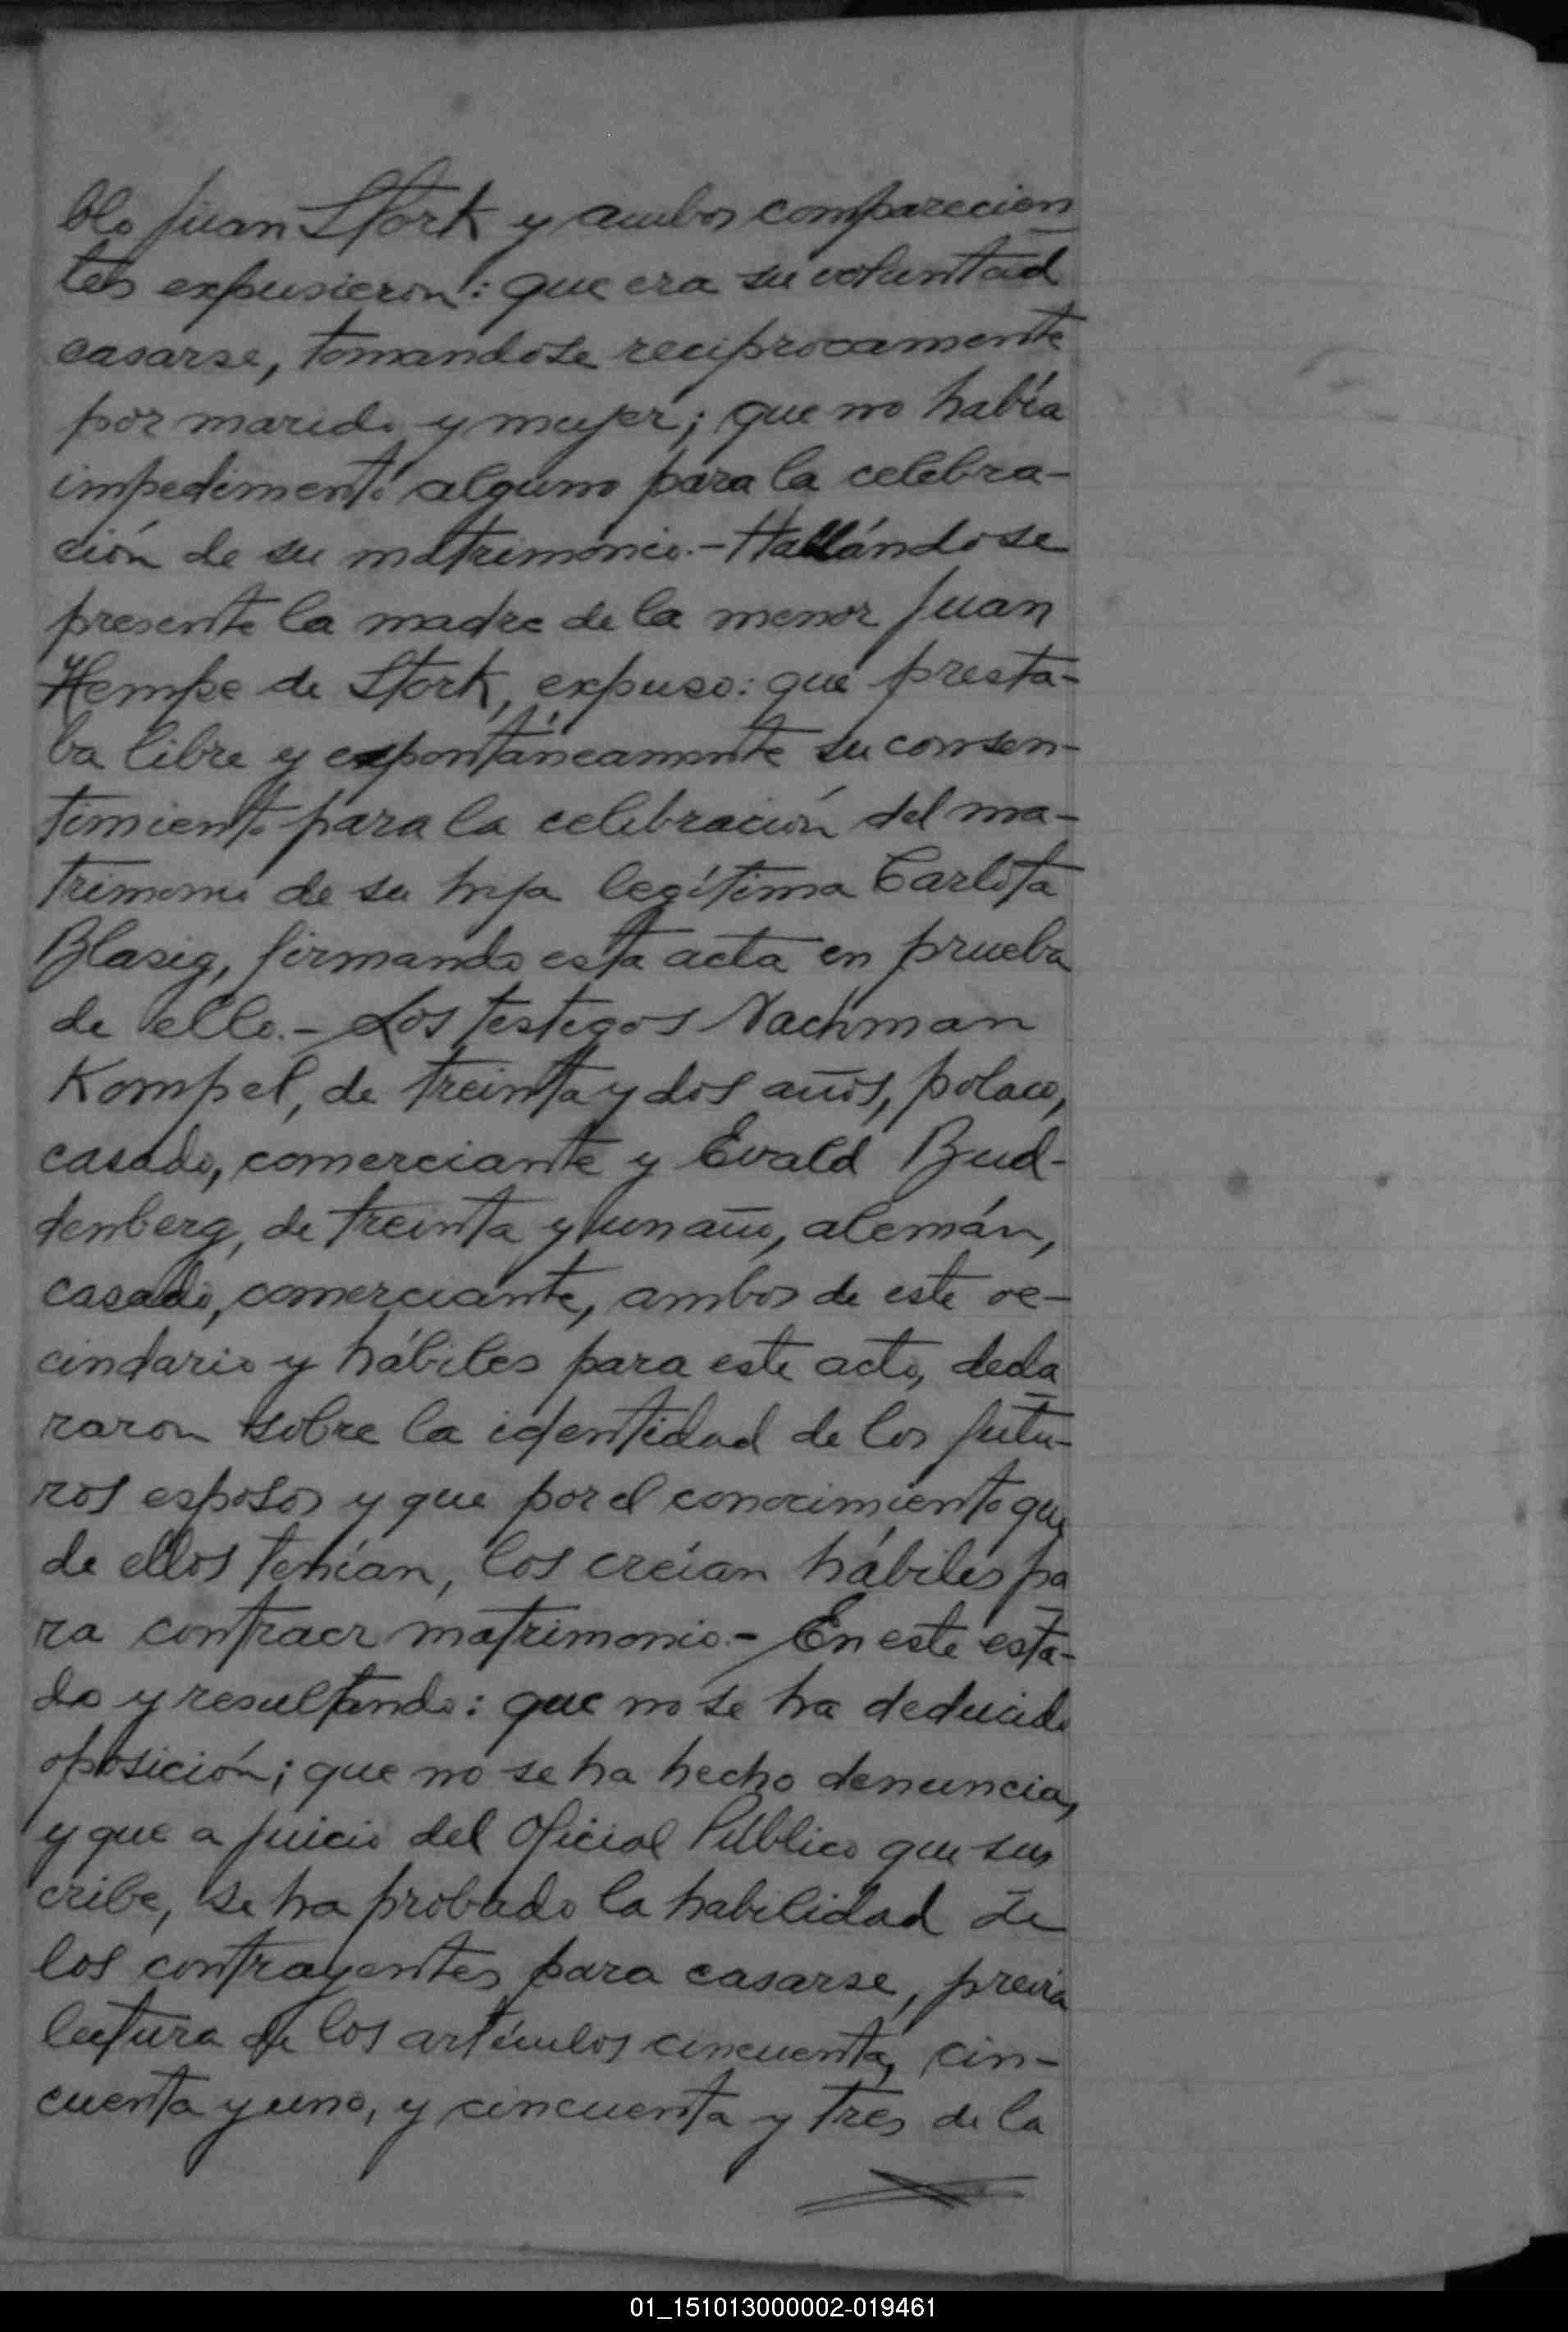 blo Juan Stork y ambos comparecien
tes expusieron: que era su voluntad
casarse, tomandose reciprocamente
por marido y mujer; que no había
impedimento alguno para la celebra-
ción de su matrimonio.- Hallándose
presente la madre de la menor Juan
Hempe de Stork, expuso: que presta-
ba libre y espontáneamente su consen-
timiento para la celebración del ma-
trimonio de su hija legítima Carlota
Blasig, firmando esta acta en prueba
de ello.- Los testigos Nachman
Kompel, de treinta y dos años, polaco,
casado, comerciante y Evald Bud-
denberg, de treinta y un año, alemán,
casado, comerciante, ambos de este ve-
cindario y hábiles para este acto, decla
raron sobre la identidad de los futu-
ros esposos y que por el conocimiento que
de ellos tenían, los creían hábiles pa
ra contraer matrimonio.- En este esta-
do y resultando: que no se ha deducido
oposición; que no se ha hecho denuncia,
y que a juicio del Oficial Público que sus
cribe, se ha probado la habilidad de
los contrayentes para casarse, previa
lectura de los artículos cincuenta, cin-
cuenta y uno, y cincuenta y tres de la
01_151013000002-019461